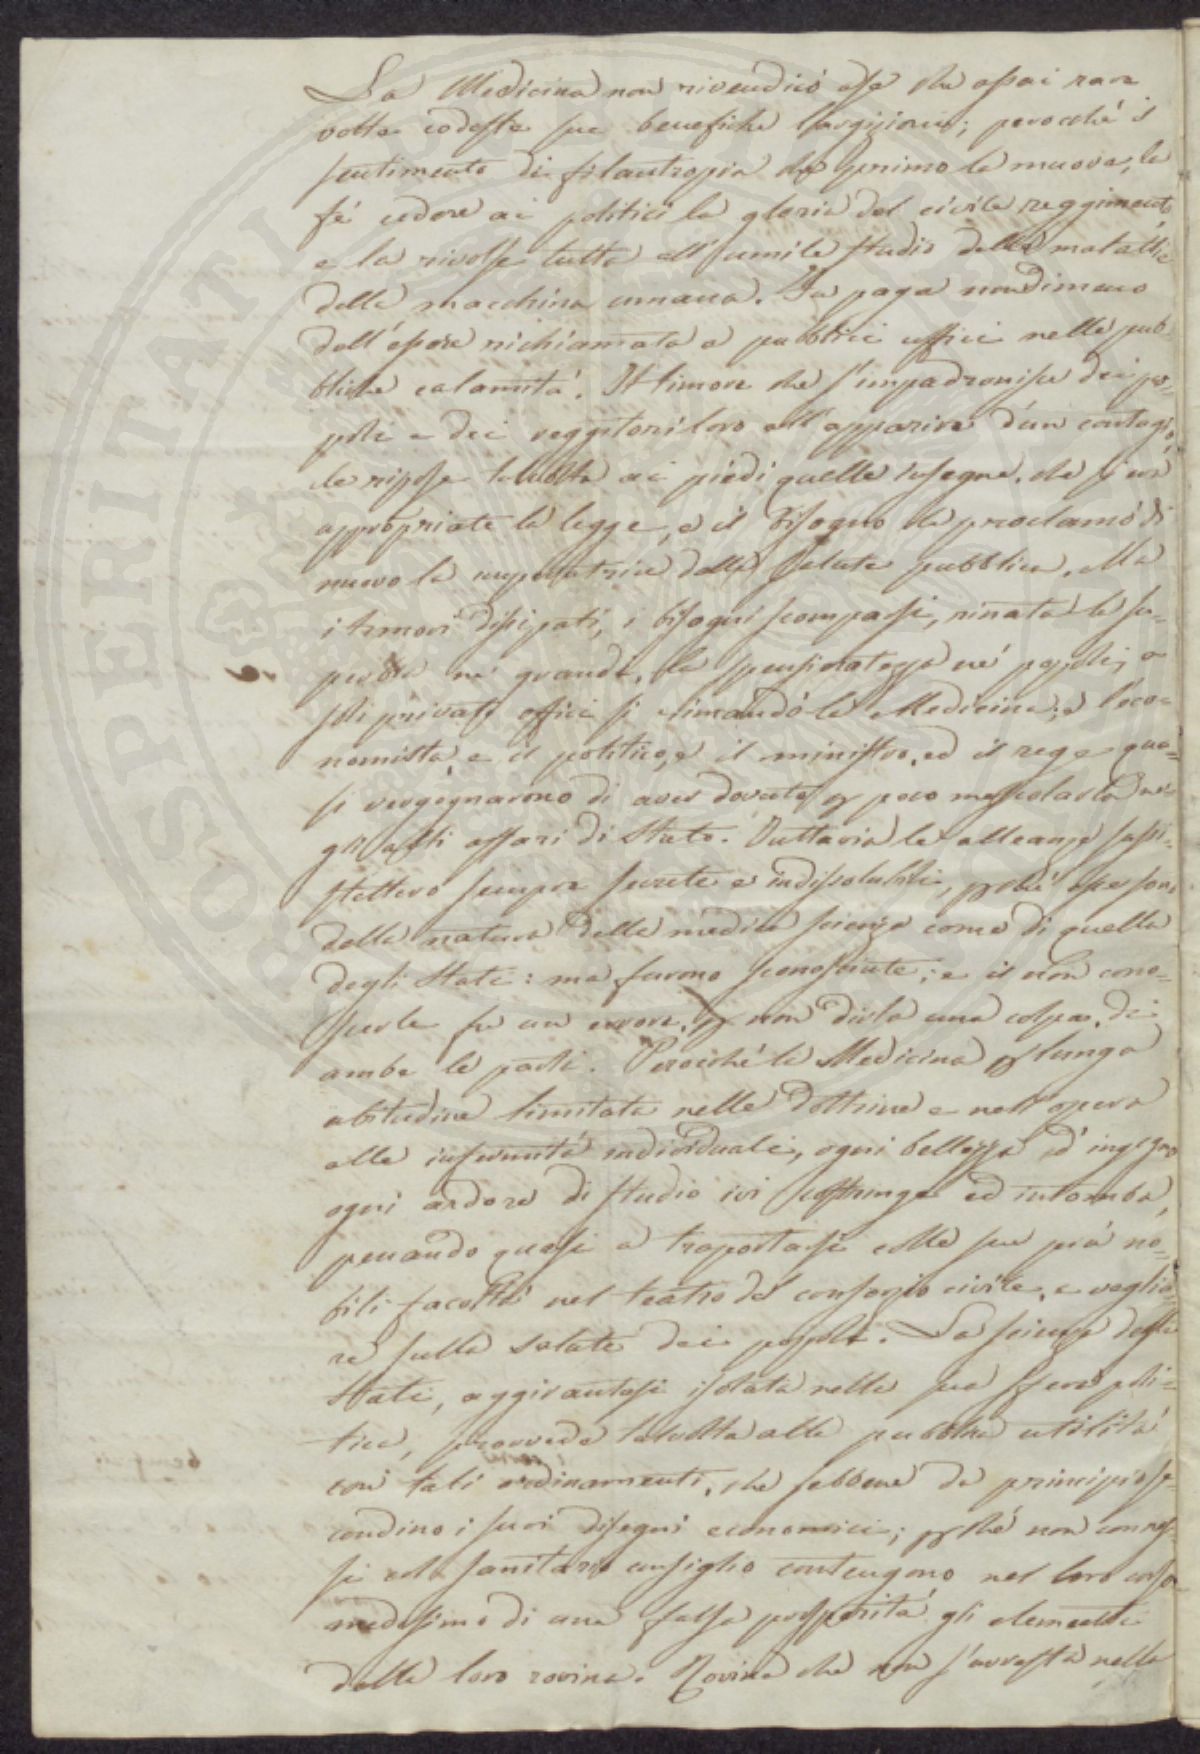 La Medicina non rivendicò esse che assai rare
volte codeste sue benefiche largizioni; perocchè il
sentimento di filantropia che primo la muova, le
fè cedere ai politici la gloria del civile reggimento
e la rivolse tutta all'umile studio delle malattie
della macchina umana. Fu paga nondimeno
dell'esser richiamata a pubblici uffici nelle pub-
bliche calamità. Il timore che s'impadronisce dei po-
poli e dei reggitori loro all'apparire d'un contagio,
le ripose talvolta ai piedi quelle insegne, che si eran
appropriate la legge, e il bisogno la proclamò di
nuovo la imperatrice della Salute pubblica. Ma
i timori dissipati, i bisogni scomparsi, rinata la su-
perbia ne' grandi, la spensieratezza ne' popoli, a
soli privati offici si rimandò la Medicina; e l'eco-
nomista, e il politico, e il ministro, ed il rege qua-
si vergognarono di aver dovuto per poco mescolarla ne-
gli alti affari di Stato. Tuttavia le alleanze sussi-
stettero sempre secrete e indissolubili, perchè esse sono
della natura della medica scienza come di quella
degli Stati: ma furono sconosciute; e il non cono-
scerle fu un errore, per non dirla una colpa, di
ambe le parti. Perocchè la Medicina per lunga
abitudine limitata nelle dottrine e nell'opera
alle infermità individuali, ogni bellezza d'ingegno
ogni ardore di studio ivi costringe ed intomba,
penando quasi a trasportarsi colle sue più no-
bili facoltà nel teatro del consorzio civile, e veglia-
re sulla salute dei popoli. La scienza degli
Stati, aggirantesi isolata nella sua sfera poli-
tica, provvede talvolta alla pubblica utilità
con tali ordinamenti, che sebbene da principio se-
condino i suoi disegni economici; perchè non connes-
si col sanitario consiglio contengono nel loro corso
medesimo di una falsa prosperità gli elementi
della loro rovina. Rovina che non s'arresta nella